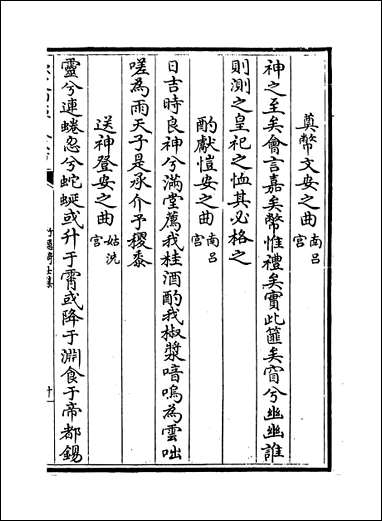 奠幣文安之曲 南呂宮
神之至矣會言嘉矣幣惟禮矣實此篚矣窅兮幽幽誰
則測之皇祀之恤其必格之
酌獻愷安之曲 南呂宮
日吉時良神兮滿堂薦我桂酒酌我椒漿喑嗚為雲咄
嗟為雨天子是承介予稷黍
送神登安之曲 姑洗宮
靈兮連蜷忽兮蛇蜒或升于霄或降于淵食于帝都錫